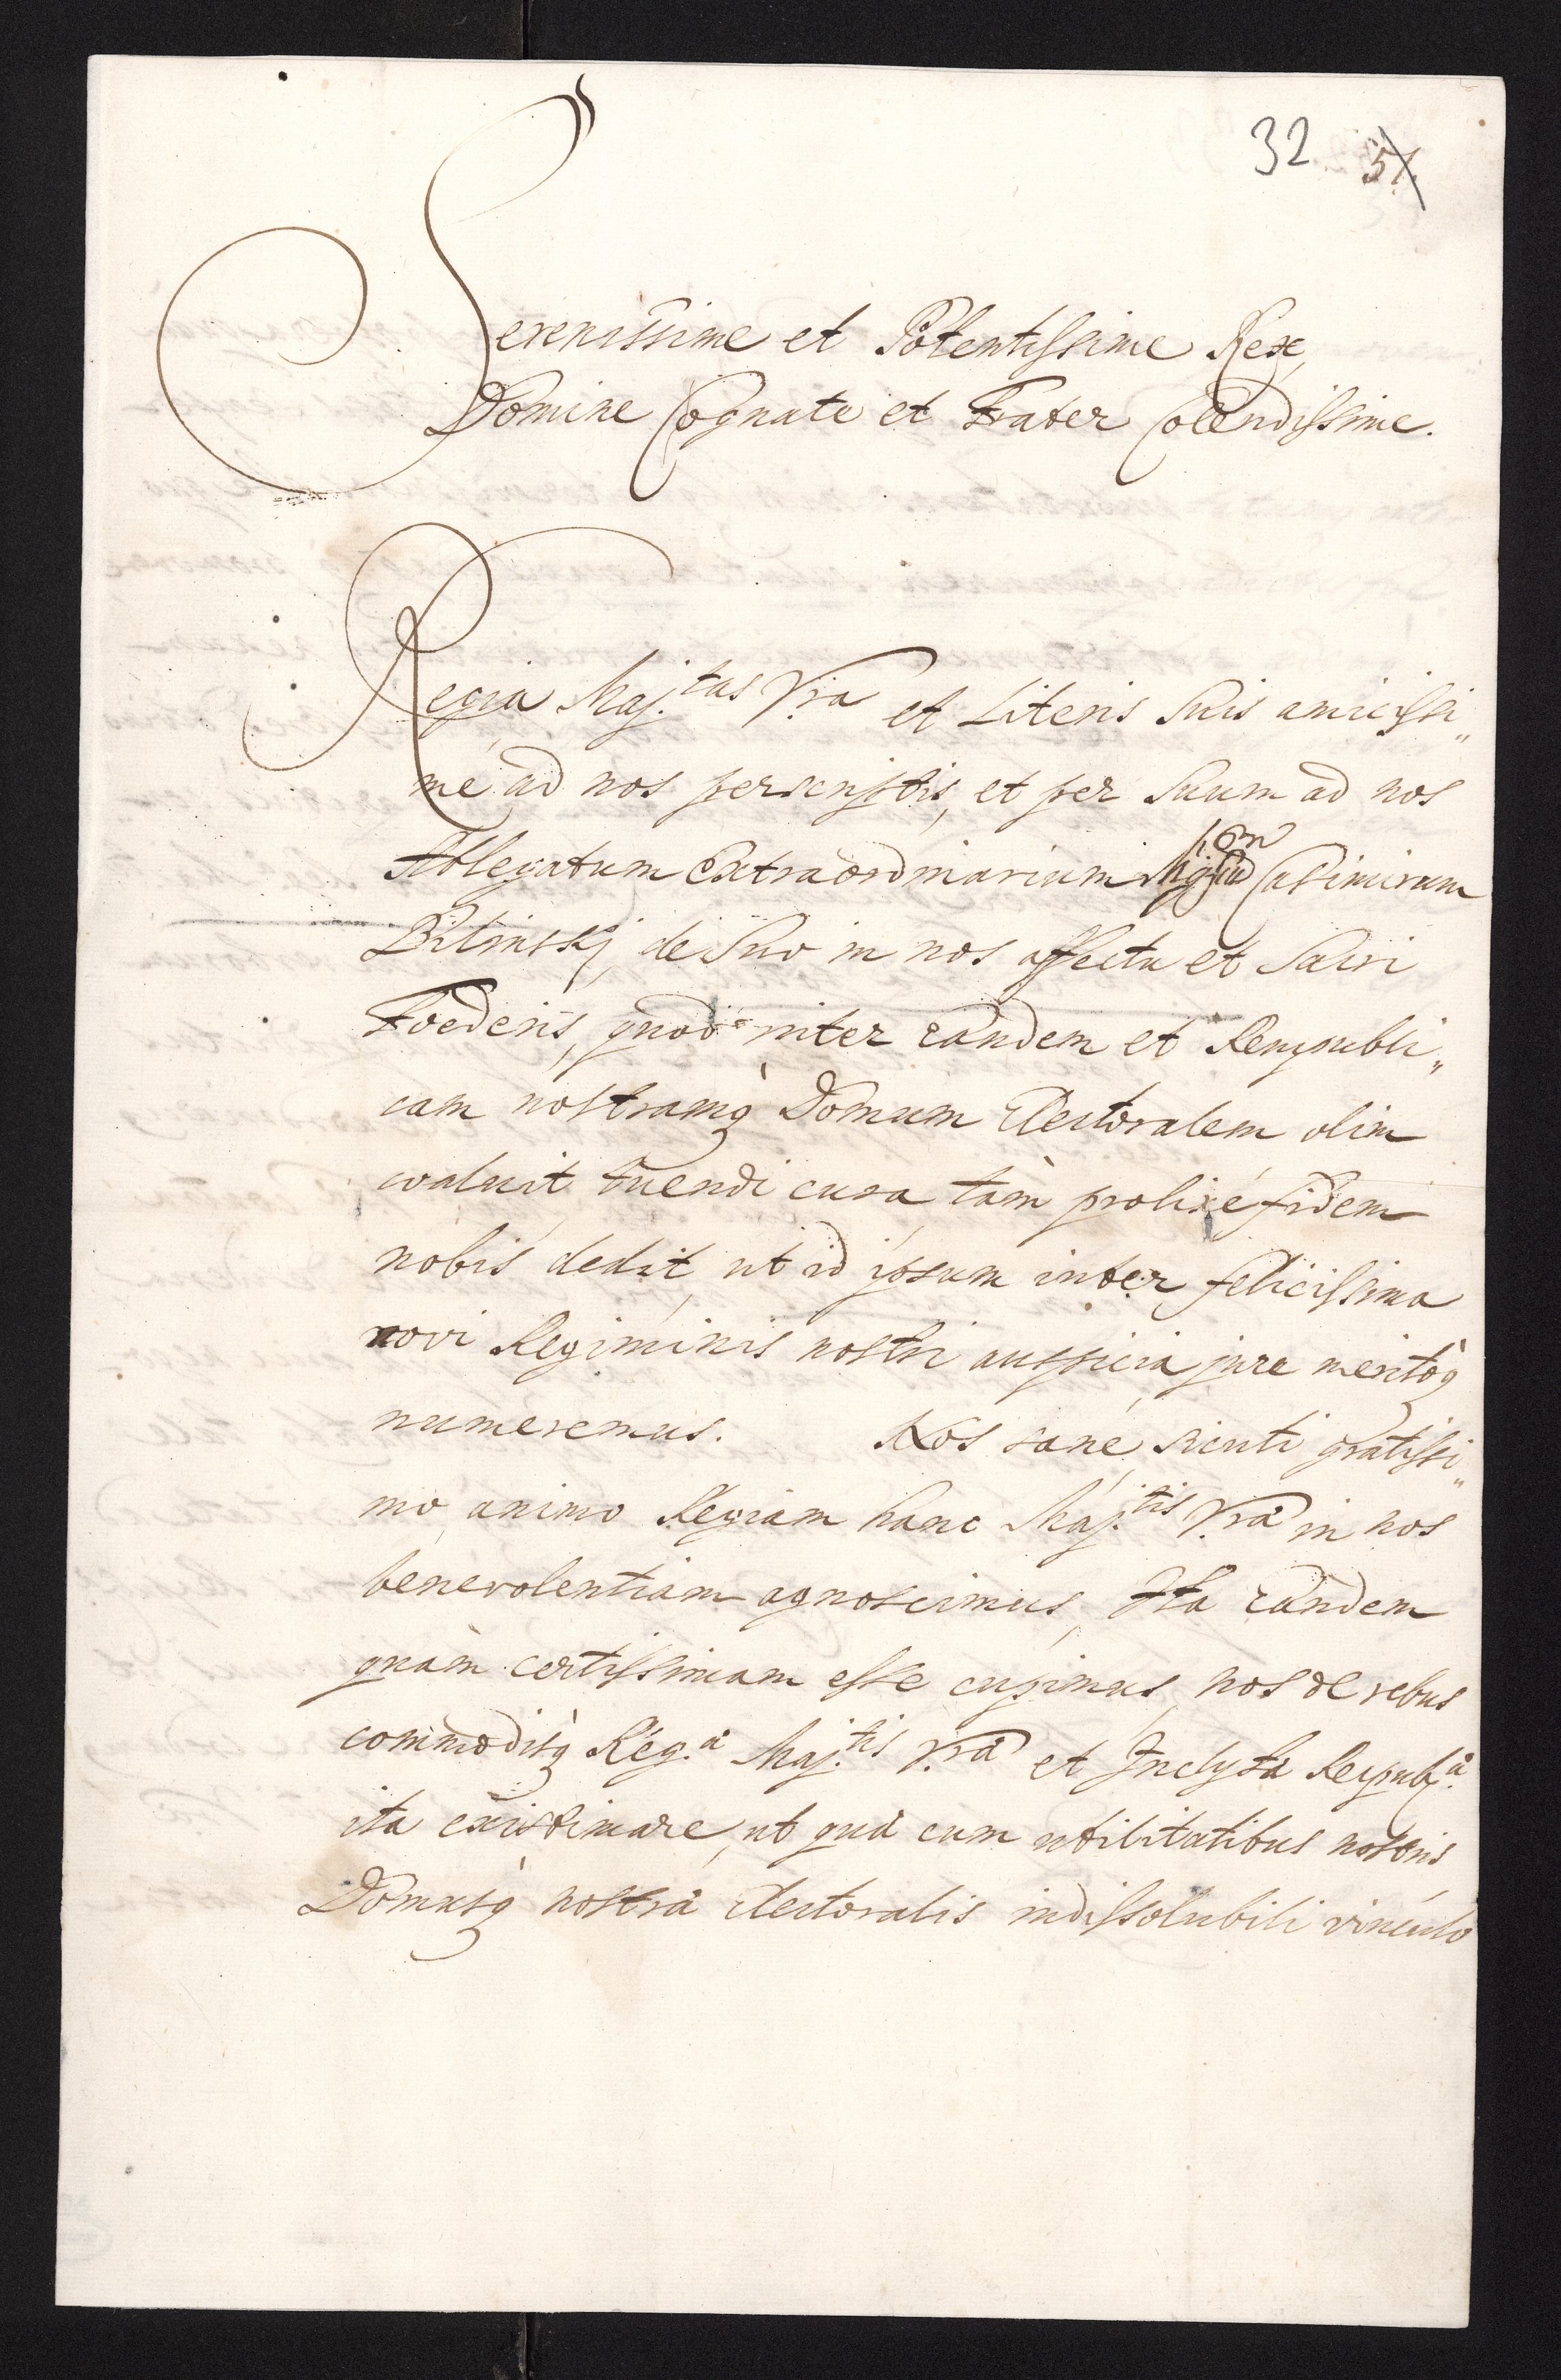 32 51.
Serenissime et Potentissime Rex,
Domine Cognate et Frater Colendissime.
Regia Maj.tas Vra et Literis Suis amicissi„
mè ad nos perscriptis, et per Suum ad nos
Ablegatum Extraordinarium Casimirum
Bilinskj, de Suo in nos affectu et Sacri
Foederis, quod inter eandem et Rempubli„
cam nostramq̀ Domum Electoralem olim
coaluit tuendi cura tàm prolixé fidem
nobis dedit, ut id ipsum inter felicissima
novi Regiminis nostri auspicia jure meritòq
numeremus. Nos sanè, sicuti gratissi„
mo animo Regiam hanc Maj.tis Vrã in nos
benevolentiam agnoscimus, Ita eandem
quàm certissimam esse cupimus, nos de rebus
commodisq̀ Reg.æ Maj.tis Vræ et Inclytæ Reipubl.æ
ita existimare, ut quæ cum utilitatibus nostris
Domusq̀ nostræ Electoralis indissolubili vinculo